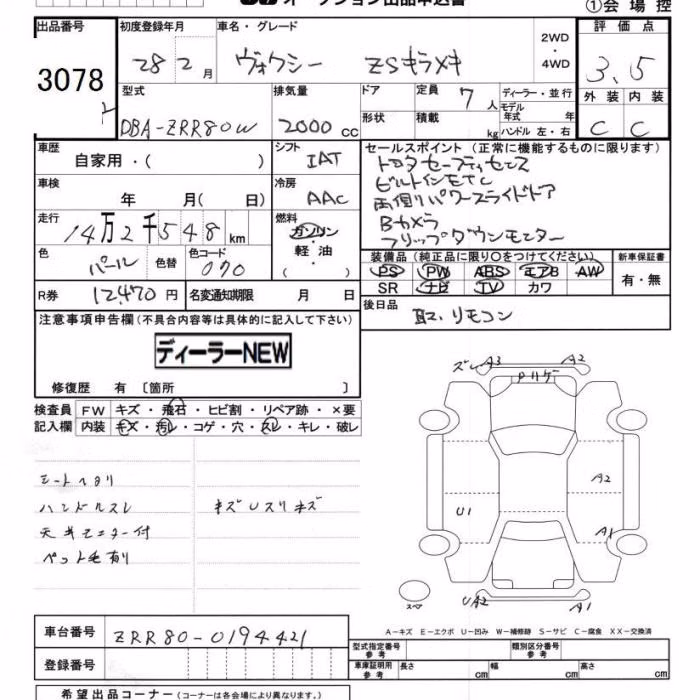 オークション出品申込書 ①会場控
出品番号 初度登録年月 車名・グレード 2WD・4WD 評価点
3078 28 2月 ヴォクシー ZSキラメキ 3.5
型式 排気量 ドア 定員 7人 ディーラー・並行 外装 内装
モデル年式 年
DBA-ZRR80W 2000cc 形状 積載 kg ハンドル 左・右 C C
車歴 シフト セールスポイント(正常に機能するものに限ります)
自家用・( ) IAT トヨタセーフティセンス
車検 冷房 ビルトインETC
年 月( 日) AAC 両側パワースライドドア
走行 燃料 Bカメラ
14万2千548km ガソリン・軽油・( ) フリップダウンモニター
色 色替 色コード 装備品(純正品に限り○をつけてください) 新車保証書
パール 070 PS PW ABS エアB AW 有・無
SR ナビ TV カワ
R券 12470円 名変通知期限 月 日 後日品
取、リモコン
注意事項申告欄(不具合内容等は具体的に記入して下さい)
ディーラーNEW
修復歴 有 〔箇所 〕
検査員記入欄 FW キズ・飛石・ヒビ割・リペア跡・×要
内装 キズ・汚レ・コゲ・穴・スレ・キレ・破レ
ズレ A3 A2
シートヘタリ
ハンドルスレ キズUスリキズ
天井モニター付
ペット毛有り
A2
U1 A1
スペア UA2 A1
A-キズ E-エクボ U-凹み W-補修跡 S-サビ C-腐食 XX-交換済
車台番号 ZRR80-0194421
型式指定番号参考 類別区分番号参考
登録番号 車庫証明用参考 長さ cm 幅 cm 高さ cm
希望出品コーナー(コーナーは各会場により異なります。)